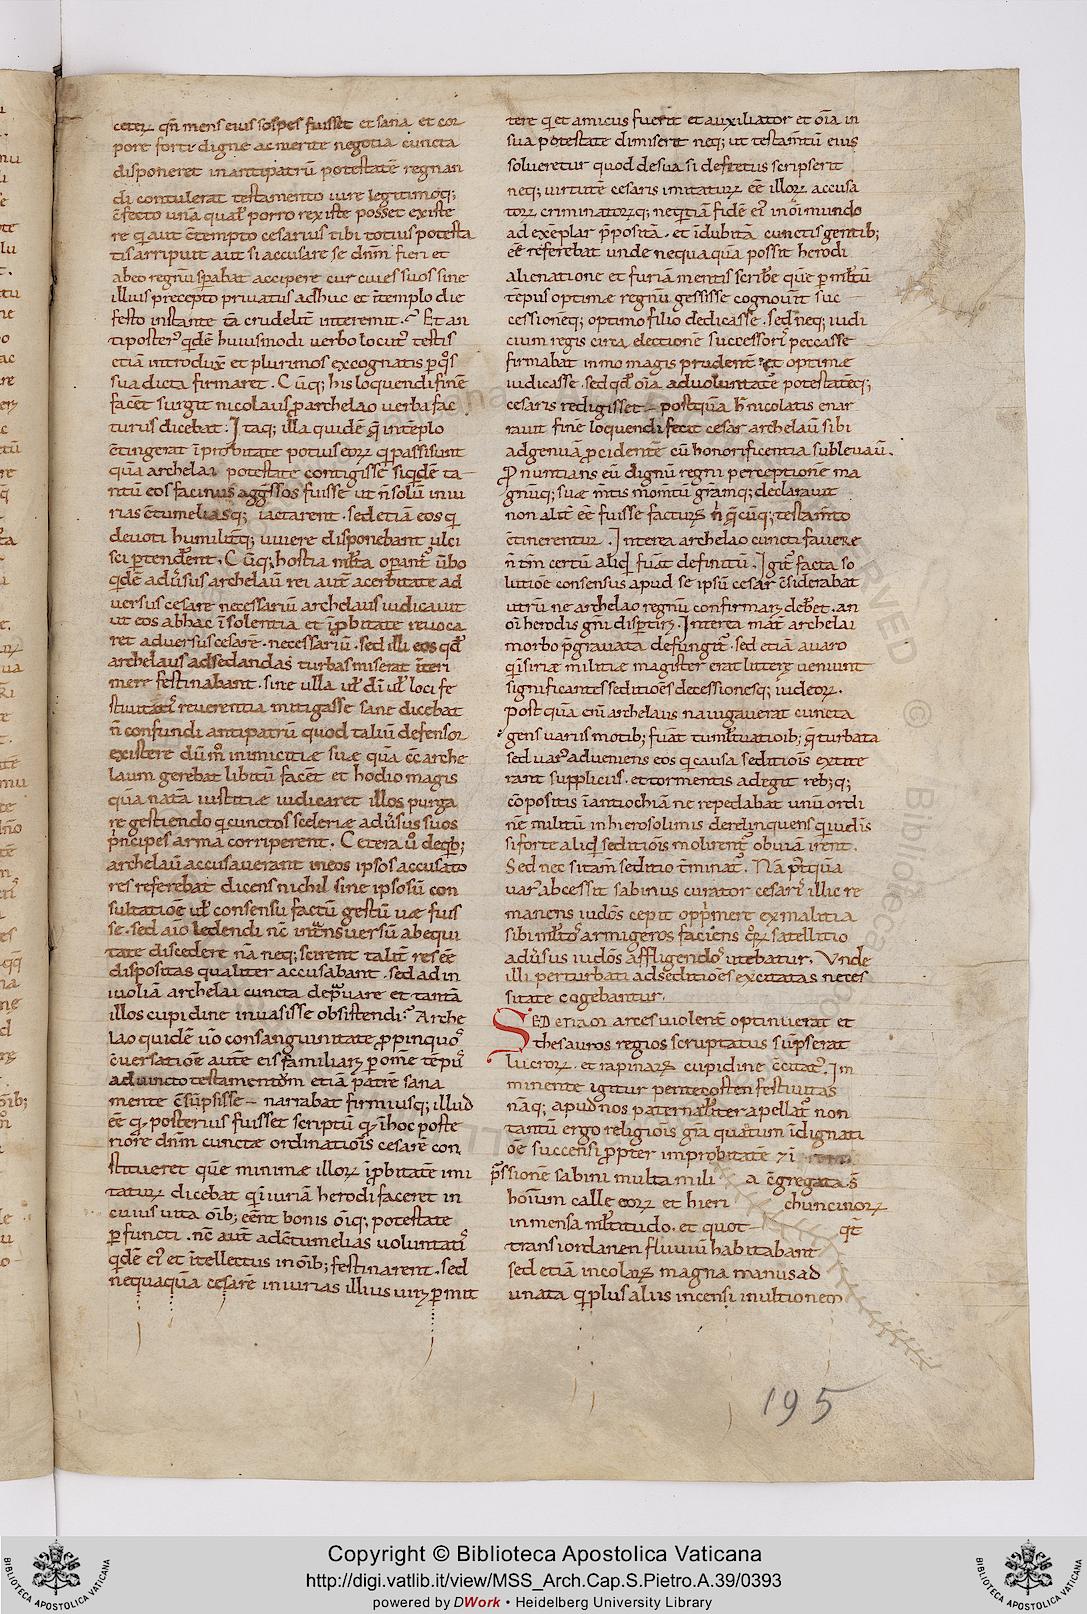 ceterꝝ qn̄ mens eius sospes fuisset et sana et cor
pore forti digne ac merite negotia cuncta
disponeret in antipatrū potestatē regnan
di contulerat testamento iure legitimoq;
ēfecto una qual' porro rex iste posset existe
re qui aut ētempto cesarius tibi totius potesta
tis arripuit aut si accusare se dn̄m fieri et
ab eo regnū sp̄abat accipere cur cives suos sine
illius precepto privatus adhuc et ītemplo die
festo instante tā crudelit̄ interemit. Et an
tiposter' qidē huiusmodi verbo locut' testis
etiā introdux̄ et plurimos excognatis p̄q's
sua dicta firmaret. Cūq; his loquendi finē
facēt surgit nicolaus ꝓarchelao verba fac
turus dicebat. Itaq; illa quidē q̄ intēplo
ētingerat īprobitate potius eorꝝ qi passi sunt
quā archelai potestate contigisse siqdē ta
ntū eos facinus agg̃ssos fuisse ut n̄ solū iniu
rias ētumeliasq; iactarent. sed etiā eos qi
devoti humilit̄q; vivere disponebant ulci
sci p̄tendēent. Cūq; hostia ml'ta opant' ūbo
qidē adūsus archelaū rei aut̄ acerbitate ad
versus cesare necessariū archelaus iudicavit
ut eos abhac īsolentia et īprobitate revoca
ret adversus cesarē. necessariū. sed illi eos qd̄
archelaus ad sedandas turbas miserat īteri
mere festinabant. sine ulla ul' dī ul' loci fe
stivitati reverentia mitigasse sane dicebat
n̄ confundi antipatrū quod taliū defensor
existere dūm̊ inimicitiæ suæ quā ēc̄ arche
laum gerebat libitū facēt et hodio magis
quā natā iustitiæ iudicaret illos purga
re gestiendo qi cunctos sceleriæ adūsus suos
p̄ncipes arma corriperent. Cetera ū deqb;
archelaū accusaverant in eos ipsos accusato
res referebat dicens nichil sine ipsosū con
sultatiōe ul' consensu factū gestū uæ fuis
se. sed aio ledendi nc̄ int̄nsversū ab equi
tate discedere nā neq; scirent talit̄ res eē
dispositas qualiter accusabant. sed ad in
violiā archelai cuncta dep̄vare et tantā
illos cupidine invasisse obsistendi. Arche
lao quidē ūo consanguinitate ꝓpinquo'
c̄versatiōe autē eis familiarꝝ p ome tēpus
adiuncto testamentom etiā patrē sana
mente ēsūpsisse narrabat firmiusq; illud
eē q̄ posterius fuisset scriptū q̄ ihoc poste
riorē dnm̄ cunctæ ordinatiois cesarē con
stitueret quē minime illorꝝ īprobitatē imi
taturꝝ dicebat qi iniuriā herodi faceret in
cuius vita oib; eēnt bonis oīq; potestate
pfuncti. nc̄ aut̄ ad c̄tumelias voluntati'
qidē ei' et ītellectus in oīb; festinarent. sed
nequaquā cesarē iniurias illius virꝝ pmit
tere qi et amicus fuerit et auxiliator et oīa in
sua potestate dimiserit neq; ut testam̄tū eius
solveretur quod de sua si defretus scripserit
neq; virtutē cesaris imitaturꝝ eē illorꝝ accusa
torꝝ criminatorꝝq; neqitiā fidē ei' in oī mundo
ad exēplar p̄positā. et īdubitā cunctis gentib;
eē referebat unde nequaquā possit herodi
alienatione et furiā mentis scribe que p ml'tū
tēpus optimæ regnū gessisse cognovit suc
cessionēq; optimo filio dedicasse. sed neq; iudi
cium regis circa electionē successori' peccasse
firmabat immo magis prudent' et optimæ
iudicasse. sed qd̄ oīa ad voluntatē potestatēq;
cesaris redigisset. postquā h̄ nicolaus enar
ravit finē loquendi fecit cesar archelaū sibi
ad genvā pcidentē eū honorificentia sublevavit.
Pnuntians eū dignū regni perceptione ma
gnūq; suæ m̄tis momtū gr̄amq; declaravit
non alit̄ eē fuisse facturꝝ n̄ q̄cūq; testam̄to
c̄tinerentur. Interea archelao cuncti favere
n̄ tm̄ certū aliqd̄ fuāt definitū. Igit' facta so
lutiōe consensus apud se ipsū cesar ēsiderabat
utrū ne archelao regnū confirmarꝝ deb̄et. an
oī herodis gn̄i disp̄tirꝝ. Interea mat̄ archelai
morbo p̄gravata defungit'. sed etiā avaro
qi insiriæ militiæ magister erat litteræ veniunt
significantes seditiōes decessionesq; iudeorꝝ.
Post quā enī archelaus navigaverat cuncta
gens variis motib; fuāt tumltuatioib; q̄ turbata
sed var' adveniens eos qi causa seditiois extite
rant suppliciis. et tormentis adegit reb;q;
cōpositis ī antiochiā ne repedabat unū ordi
nē militū in hierosolimis derelinquens qi videl's
siforte aliqd̄ seditiois molirent' obviā irent.
Sed nec sitam seditio t̄minat'. Nā p̄tquā
var' abcessit sabinus curator cesari' illic re
manens iudōs cepit opp̄mert ex malitia
sibi ml'to' armigeros faciens qo'rꝝ satellitio
adūsus iudōs affligendo' utebatur. Unde
illi perturbati ad seditiōes excitatas neces
sitate cogebantur.
SED enaoi arces violent̄ optinuerat et
thesauros regios scruptatus sūpserat
lucrorꝝ. et rapinarꝝ cupidine c̄citat'. Im
minente igitur pentecosten festivitas
nāq; apud nos paternaliter apellat' non
tantū ergo religiois gr̄a quātum īdignati
ōe succensi ꝓpter improbitatē
p̄ssione sabini multa mili a ēgregata s̄
hoīum calle eorꝝ et hieri chuntinorꝝ
inmensa ml'titudo. et quot qi t̄
trans iordanen fluviū habitabant
sed etiā incolarꝝ magna manus ad
unata qi plus aliis incensi in ultionem
195
Copyright © Biblioteca Apostolica Vaticana
http://digi.vatlib.it/view/MSS_Arch.Cap.S.Pietro.A.39/0393
powered by DWork • Heidelberg University Library
BIBLIOTECA APOSTOLICA VATICANA
BIBLIOTECA APOSTOLICA VATICANA